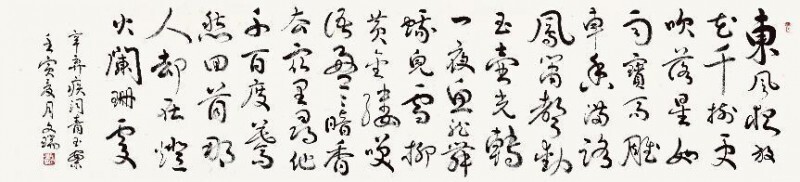 東風夜放
花千樹更
吹落星如
雨寶馬雕
車香滿路
鳳簫聲動
玉壺光轉
一夜魚龍舞
蛾兒雪柳
黃金縷笑
語盈〻暗香
去眾里尋他
千百度驀
然回首那
人却在燈
火闌珊處
辛弃疾詞青玉案
壬寅夏月文瑞